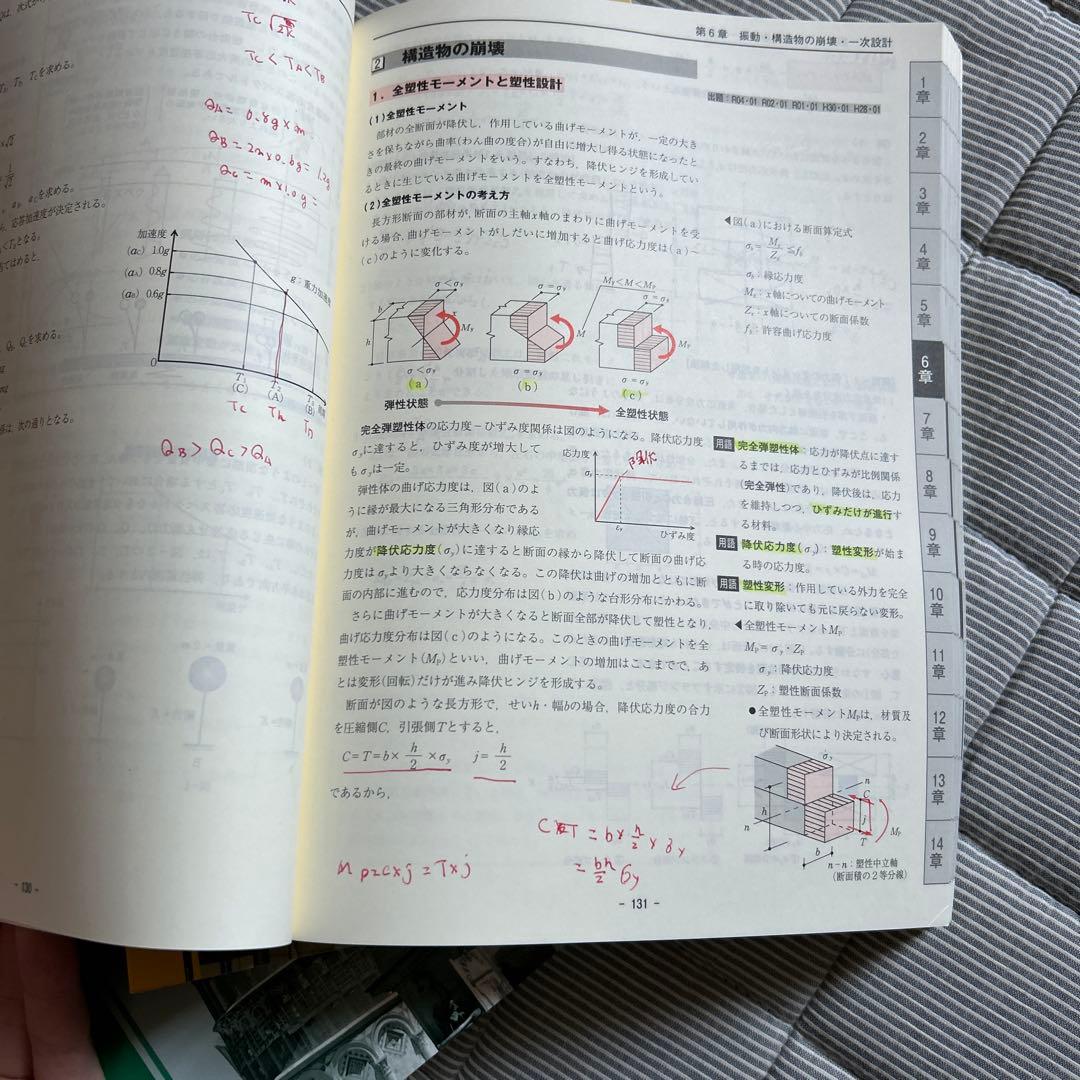 T_C √
T_C < T_A < T_B
Q_A = 0.8g × m
Q_B = 2m × 0.6g = 1.2g
Q_C = m × 1.0g =
を求める。
を求める。
応答加速度が決定される。
となる。
を求める。
次の通りとなる。
加速度
(αC) 1.0g
(αA) 0.8g
(αB) 0.6g
g：重力加速度
0
T₁
(C)
T₂
(A)
T₃
(B)
T_C
T_A
Q_B > Q_C > Q_A
- 130 -
第6章 振動・構造物の崩壊・一次設計
2 構造物の崩壊
1．全塑性モーメントと塑性設計
出題：R04・01 R02・01 R01・01 H30・01 H28・01
(1)全塑性モーメント
部材の全断面が降伏し，作用している曲げモーメントが，一定の大き
さを保ちながら曲率(わん曲の度合)が自由に増大し得る状態になったと
きの最終の曲げモーメントをいう。すなわち，降伏ヒンジを形成してい
るときに生じている曲げモーメントを全塑性モーメントという。
(2)全塑性モーメントの考え方
長方形断面の部材が，断面の主軸x軸のまわりに曲げモーメントを受
ける場合，曲げモーメントがしだいに増加すると曲げ応力度は(a)～
(c)のように変化する。
◀図(a)における断面算定式
σb = Mx/Zx ≦ fb
σb：縁応力度
Mx：x軸についての曲げモーメント
Zx：x軸についての断面係数
fb：許容曲げ応力度
σ<σy
σ=σy
My<M<Mp
σ=σy
b
h
x
My
M
Mp
σ<σy
σ=σy
σ=σy
(a)
(b)
(c)
弾性状態
全塑性状態
完全弾塑性体の応力度－ひずみ度関係は図のようになる。降伏応力度
σyに達すると，ひずみ度が増大して
もσyは一定。
弾性体の曲げ応力度は，図(a)のよ
うに縁が最大になる三角形分布である
が，曲げモーメントが大きくなり縁応
力度が降伏応力度(σy)に達すると断面の縁から降伏して断面の曲げ応
力度はσyより大きくならなくなる。この降伏は曲げの増加とともに断
面の内部に進むので，応力度分布は図(b)のような台形分布にかわる。
さらに曲げモーメントが大きくなると断面全部が降伏して塑性となり，
曲げ応力度分布は図(c)のようになる。このときの曲げモーメントを全
塑性モーメント(Mp)といい，曲げモーメントの増加はここまでで，あ
とは変形(回転)だけが進み降伏ヒンジを形成する。
断面が図のような長方形で，せいh・幅bの場合，降伏応力度の合力
を圧縮側C，引張側Tとすると，
C=T=b× h/2 ×σy　j= h/2
であるから，
応力度
σy
降伏
εy
ひずみ度
用語 完全弾塑性体：応力が降伏点に達す
るまでは，応力とひずみが比例関係
(完全弾性)であり，降伏後は，応力
を維持しつつ，ひずみだけが進行す
る材料。
用語 降伏応力度(σy)：塑性変形が始ま
る時の応力度。
用語 塑性変形：作用している外力を完全
に取り除いても元に戻らない変形。
◀全塑性モーメントMp
Mp=σy・Zp
σy：降伏応力度
Zp：塑性断面係数
●全塑性モーメントMpは，材質及
び断面形状により決定される。
σy
n
C
h
j
n
T
Mp
b
n−n：塑性中立軸
(断面積の2等分線)
C T = b × h/2 × σy
= bh/2 σy
Mp = C×j = T×j
- 131 -
1章
2章
3章
4章
5章
6章
7章
8章
9章
10章
11章
12章
13章
14章